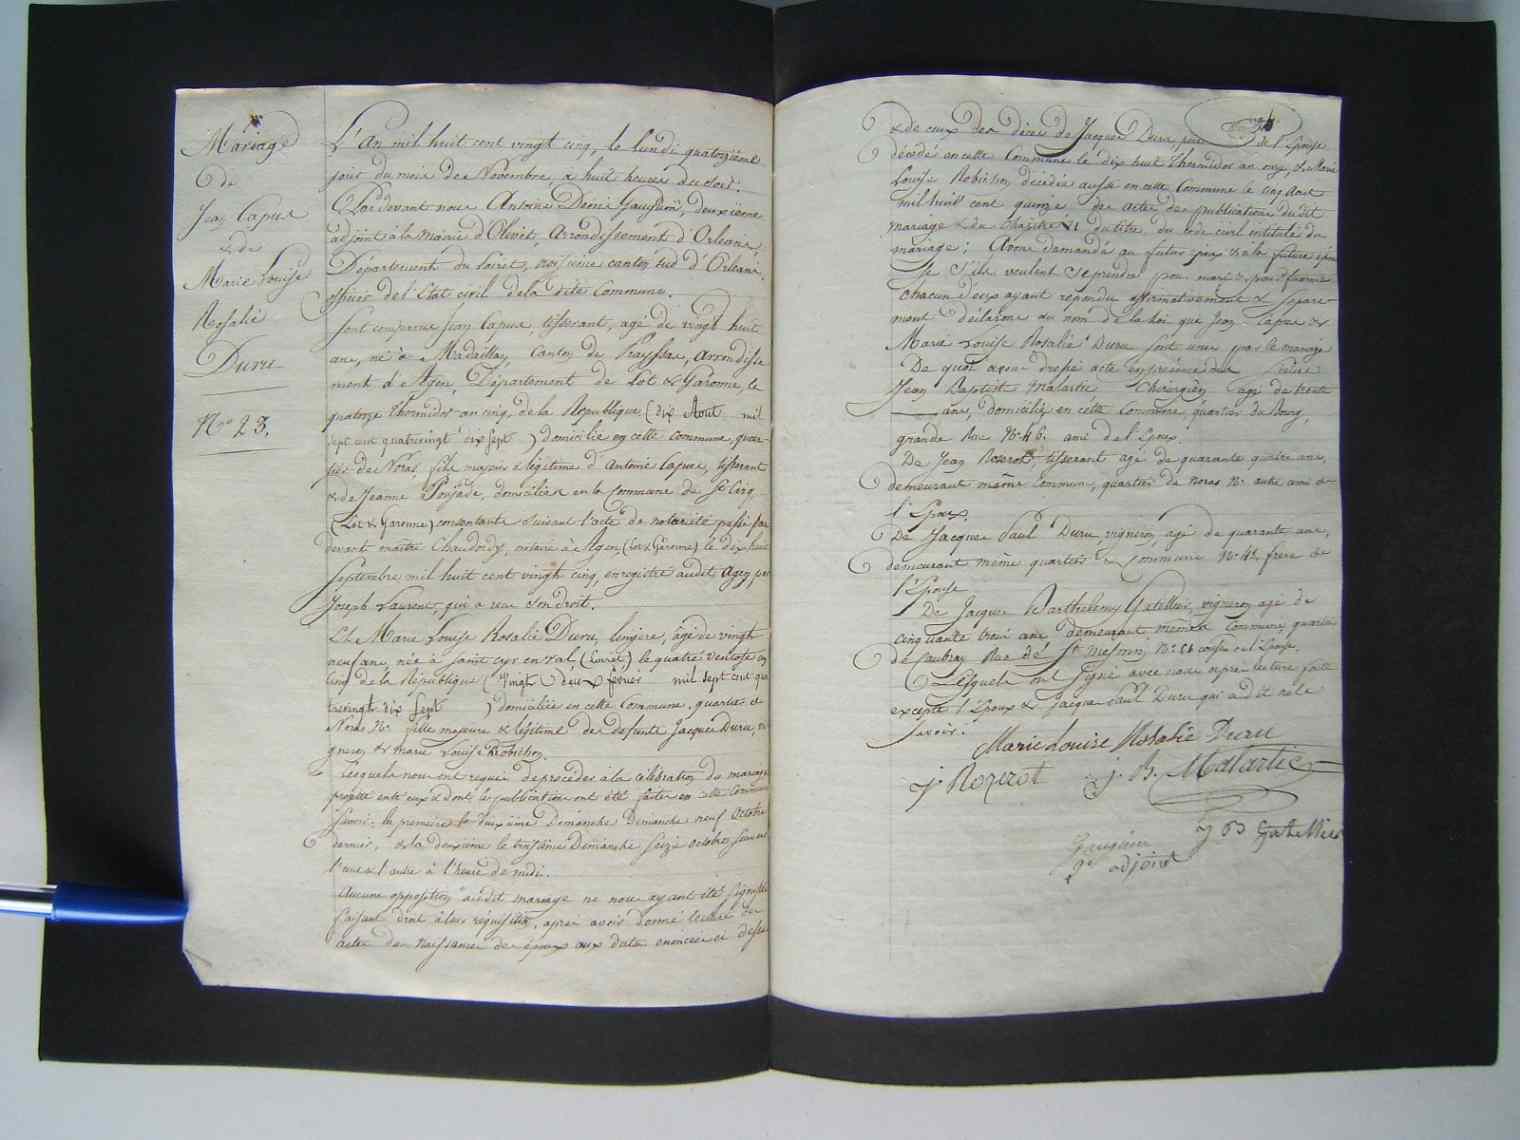 Mariage
de
Jean Capus
& de
Marie Louise
Rosalie
Duru
No 23.
L'An mil huit cent vingt cinq, le lundi quatorzième
jour du mois de Novembre à huit heures du soir.
Pardevant nous Antoine Denis Gauguin, deuxième
adjoint à la mairie d'Olivet, Arrondissement d'Orléans,
Département du Loiret, troisième canton sud d'Orléans,
officier de l'Etat civil de la dite Commune.
Sont comparus Jean Capus tisserant, agé de vingt huit
ans, né à Madaillan, Canton de Prayssas, arrondisse
ment d'Agen, Département de Lot & Garonne, le
quatorze Thermidor an cinq, de la République, (dix Aout mil
sept cent quatrevingt dix sept ) domicilié en cette commune, quar-
tier de Noras, fils majeur & légitime d'Antoine Capus, tisserant
& de Jeanne Pousade, domiciliés en la Commune de St Cirq
(Lot & Garonne) consentants suivant l'acte de notariété passé par
devant maître Chaudordy, notaire à Agen, (Lot & Garonne) le dix huit
Septembre mil huit cent vingt cinq, enregistré audit Agen, par
Joseph Laurent, qui a reçu son droit.
Et Marie Louise Rosalie Duru, lingère, agée de vingt
neuf ans, née à Saint Cyr en Val, (Loiret) le quatre Ventose an
cinq de la République (Vingt deux fevrier mil sept cent qua
trevingt dix sept ) domiciliée en cette Commune, quartier de
Noras No fille majeure & légitime de defunts Jacques Duru, vi
gneron & marie Louise Robichon.
Lesquels nous ont requis de proceder à la célébration du mariage
projetté entre eux & dont les publications ont été faites en cette Commune
savoir: la première le deuxième Dimanche Dimanche neuf Octobre
dernier, & la deuxième le troisième Dimanche seize octobre suivant
l'une & l'autre à l'heure de midi.
Aucune opposition audit mariage ne nous ayant été signifiée
faisant droit à leur requisition, après avoir donné lecture des
actes de naissance des époux aux dates énoncées ci dessus
& de ceux des décès de Jacques Duru, père de l'Epouse
décédé en cette Commune le dix huit Thermidor an onze, & Marie
Louise Robichon décédée aussi en cette Commune le cinq Aout
mil huit cent quinze des actes de publications dudit
mariage & du chapitre VI du titre du code civil intitulé du
mariage; Avons demandé au futur époux & à la future épou
se s'ils veulent se prendre pour mari & pour femme
chacun d'eux ayant répondu affirmativement & séparé-
ment déclarons au nom de la loi que Jean Capus &
Marie Louise Rosalie Duru sont unis par le mariage
De quoi avons dressé acte en présence des Sieurs
Jean Baptiste Malartic Chirurgien agé de trente
ans, domicilié en cette Commune, quartier du Bourg,
grande Rue No 46. ami de l'Epoux.
De Jean Rozerot, tisserant agé de quarante quatre ans,
demeurant même Commune, quartier de Noras No autre ami de
l'Epoux.
De Jacques Paul Duru vigneron, agé de quarante ans,
demeurant même quartier & Commune No 42 frère de
l'Epouse
De Jacques Barthelemy Gatellier, vigneron agé de
cinquante trois ans demeurant même Commune, quartier
de Caubray Rue de St Mesmin, No 28 cousin de l'Epouse,
Lesquels ont signé avec nous après lecture faite
excepté l'Epoux & Jacques Paul Duru qui a dit ne le
savoir.
Marie Louise Rosalie Duru
J Rozerot J. B. Malartic
J B Gatellier
Gauguin
adjoint